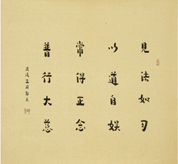 見法如司
以道自娛
常得正念
普行大慈